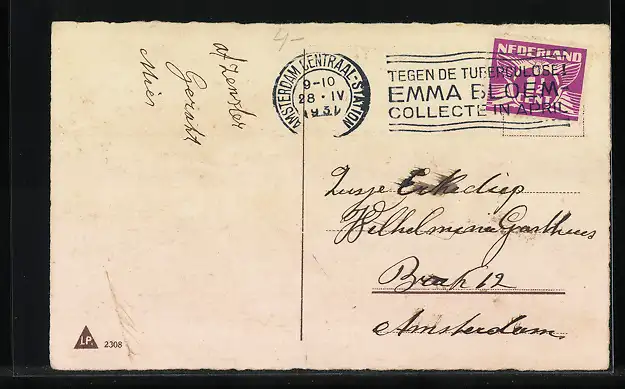 4-
afzender
Mies
AMSTERDAM CENTRAAL-STATION
9-10
28·IV
193
TEGEN DE TUBERCULOSE!
EMMA BLOEM
COLLECTE IN APRIL
NEDERLAND
1½
Zusje
Wilhelmina Gasthuis
12
Amsterdam.
LP 2308